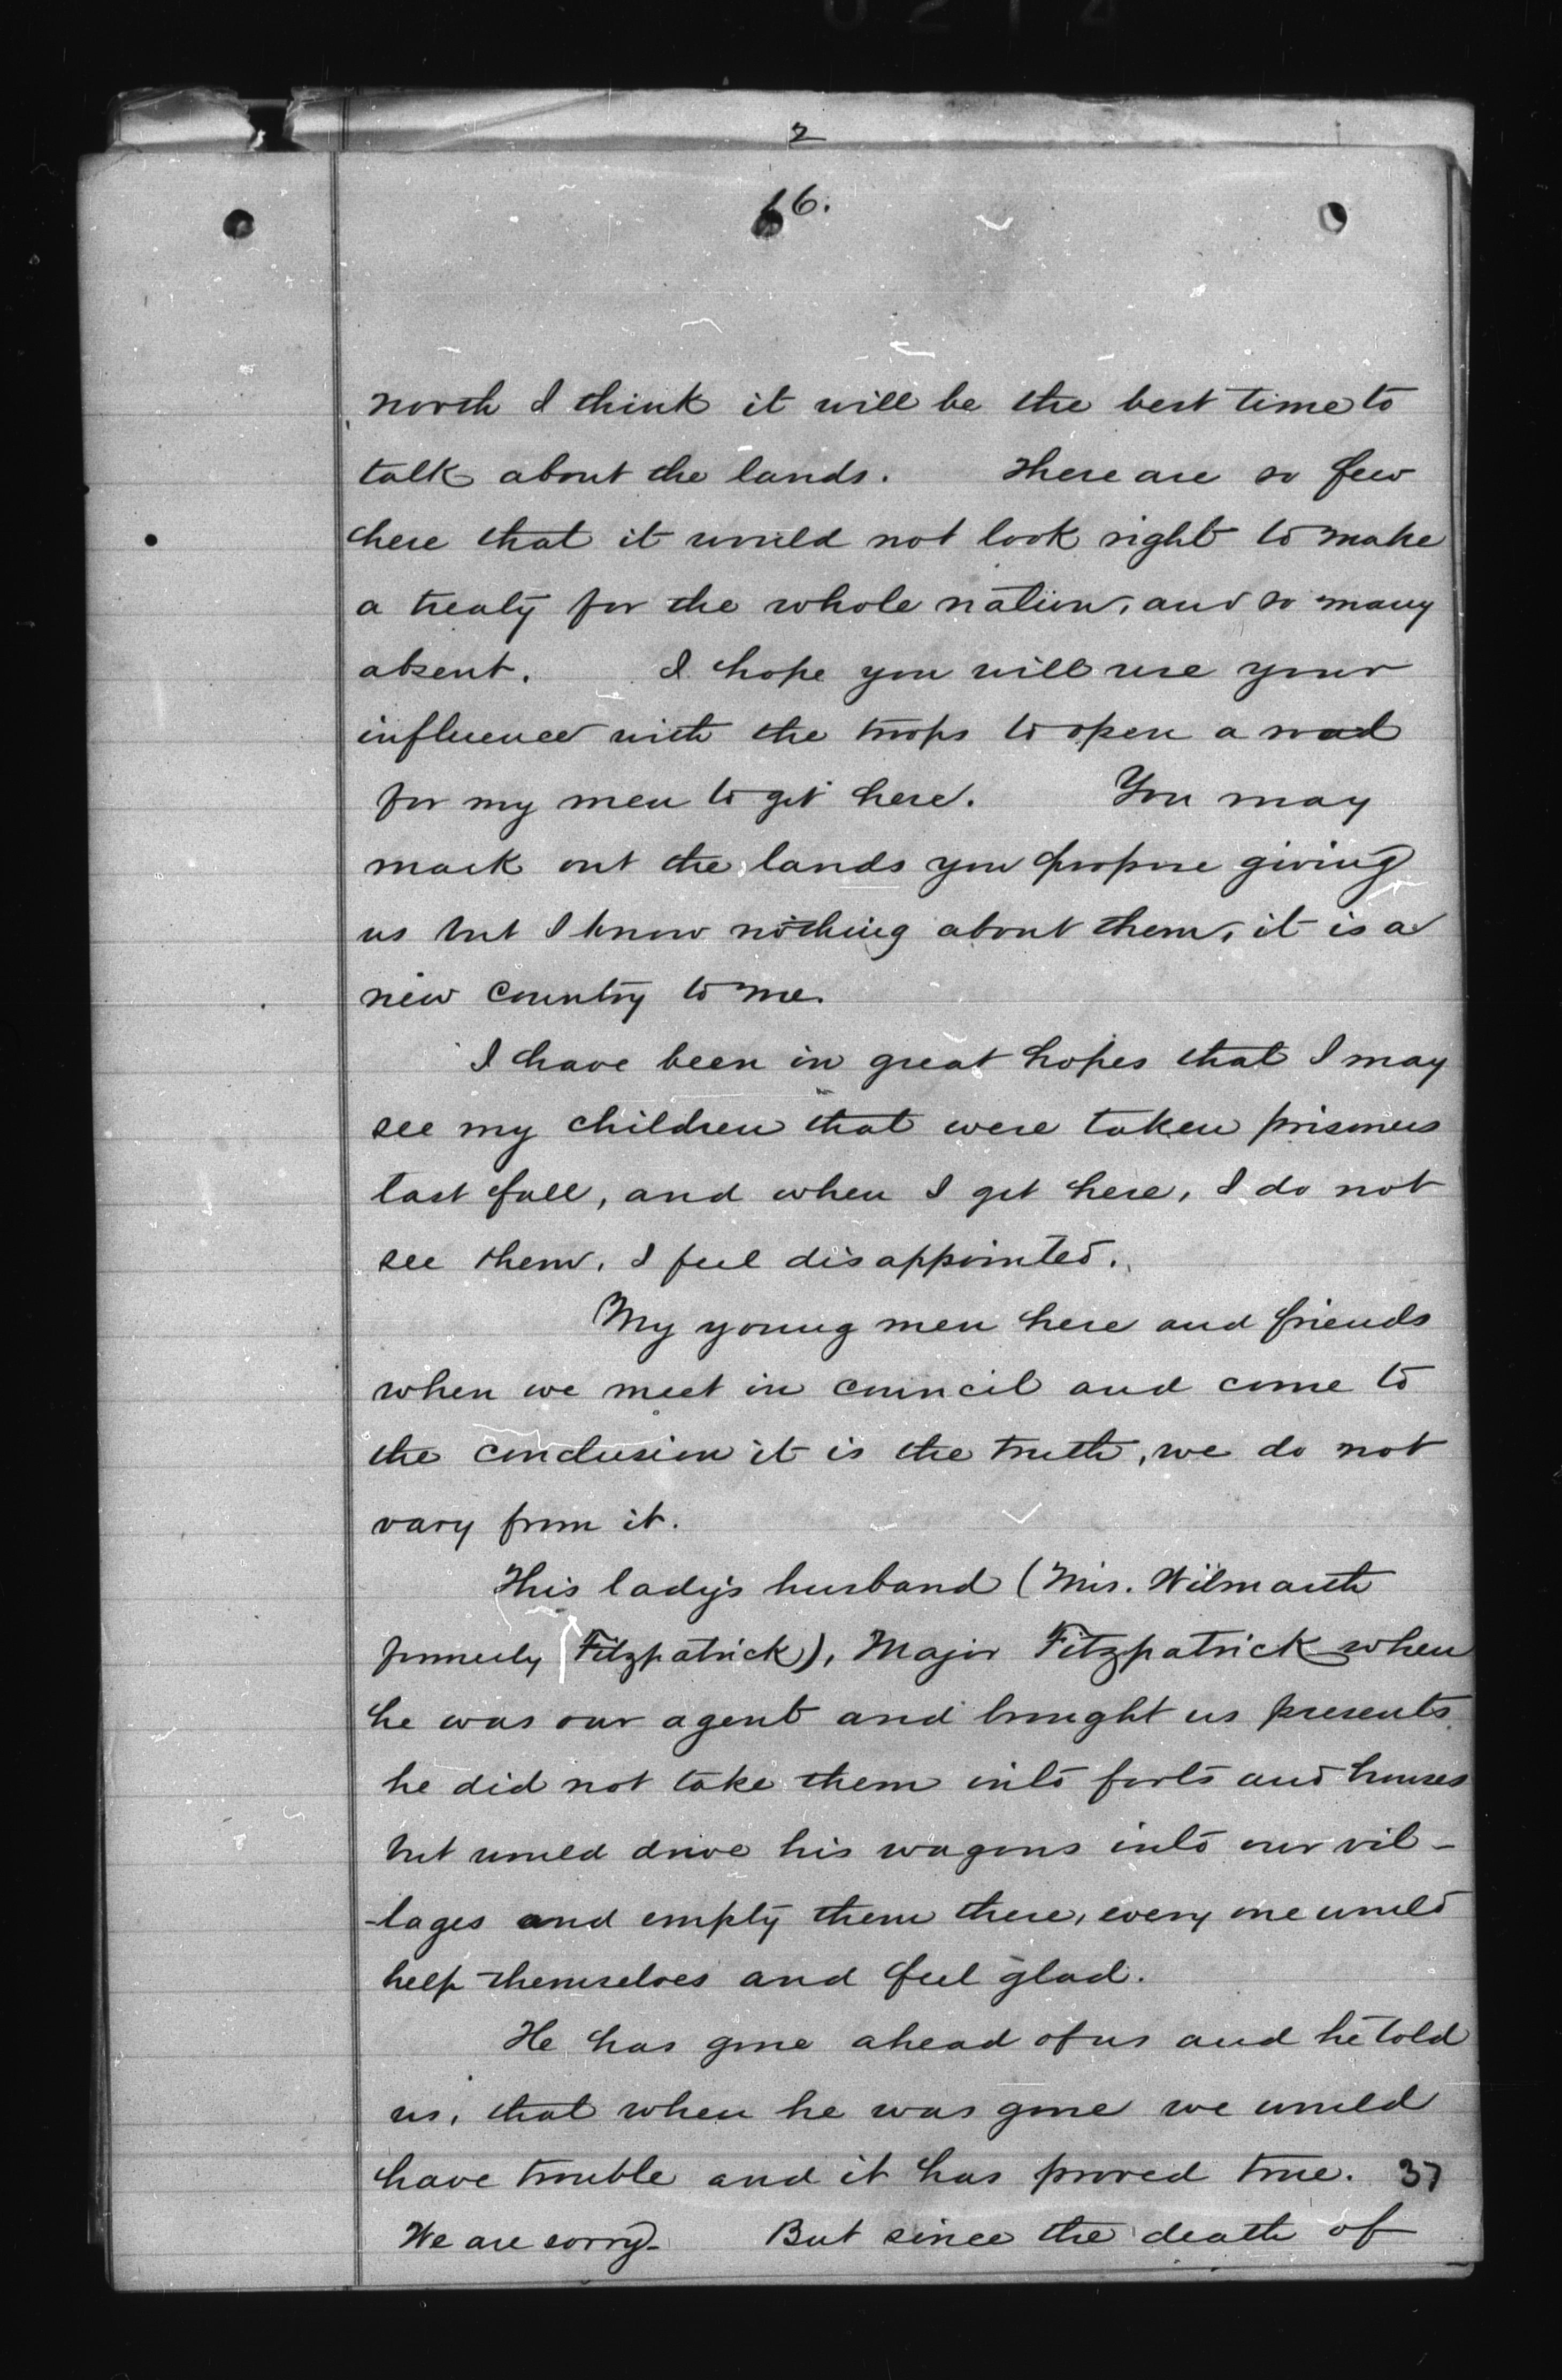 2
16.
north I think it will be the best time to
talk about the lands. There are so few
here that it would not look right to make
a treaty for the whole nation, and so many
absent. I hope you will use your
influence with the troops to open a road
for my men to get here. You may
mark out the lands you propose giving
us but I know nothing about them, it is a
new country to me.
I have been in great hopes that I may
see my children that were taken prisoners
last fall, and when I get here, I do not
see them, I feel disappointed.
My young men here and friends
when we meet in council and come to
the conclusion it is the truth, we do not
vary from it.
This lady's husband (Mrs. Wilmarth
formerly Fitzpatrick), Major Fitzpatrick when
he was our agent and brought us presents
he did not take them into forts and houses
but would drive his wagons into our vil-
-lages and empty them there, every one would
help themselves and feel glad.
He has gone ahead of us and he told
us, that when he was gone we would
have trouble and it has proved true. 37
We are sorry. But since the death of